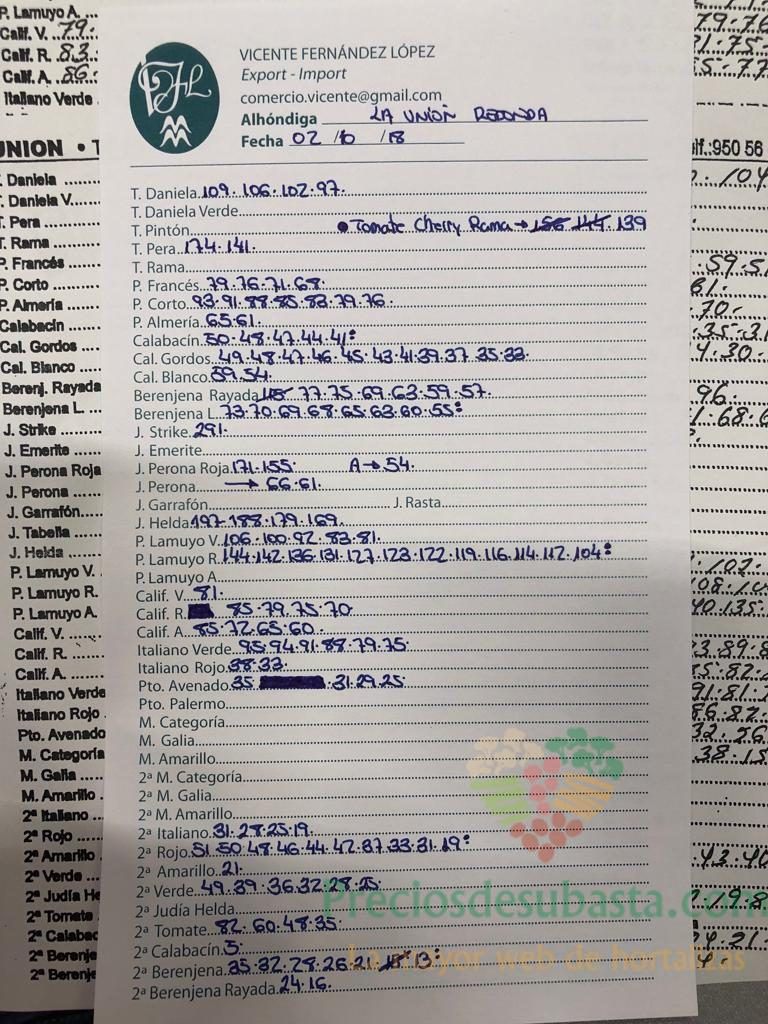 VICENTE FERNÁNDEZ LÓPEZ
Export - Import
comercio.vicente@gmail.com
Alhóndiga LA UNION REDONDA
Fecha 02 / 10 / 18
T. Daniela 109. 106. 102. 97.
T. Daniela Verde
T. Pintón • Tomate Cherry Rama → 156 144 139
T. Pera 174. 141.
T. Rama
P. Francés 79. 76. 71. 68.
P. Corto 93. 91. 88. 85. 83. 79. 76.
P. Almería 65. 61.
Calabacín 50. 48. 47. 44. 41:
Cal. Gordos 49. 48. 47. 46. 45. 43. 41. 39. 37. 35. 33.
Cal. Blanco 59. 54.
Berenjena Rayada 77. 75. 69. 63. 59. 57.
Berenjena L. 73. 70. 69. 68. 65. 63. 60. 55:
J. Strike 291.
J. Emerite
J. Perona Roja 171. 155. A → 54.
J. Perona → 66. 61.
J. Garrafón J. Rasta
J. Helda 197. 188. 179. 169.
P. Lamuyo V. 106. 100. 92. 83. 81.
P. Lamuyo R. 144. 142. 136. 131. 127. 123. 122. 119. 116. 114. 112. 104:
P. Lamuyo A
Calif. V. 81.
Calif. R. 85. 79. 75. 70.
Calif. A. 85. 72. 65. 60.
Italiano Verde 95. 94. 91. 88. 79. 75.
Italiano Rojo 38. 33.
Pto. Avenado 35 . 31. 29. 25.
Pto. Palermo
M. Categoría
M. Galia
M. Amarillo
2ª M. Categoría
2ª M. Galia
2ª M. Amarillo
2ª Italiano 31. 28. 25. 19.
2ª Rojo 51. 50. 48. 46. 44. 42. 37. 33. 31. 19:
2ª Amarillo 21.
2ª Verde 49. 39. 36. 32. 28. 25.
2ª Judía Helda
2ª Tomate 82. 60. 48. 35.
2ª Calabacín 5.
2ª Berenjena 35. 32. 28. 26. 21. 13:
2ª Berenjena Rayada 24. 16.
P. Lamuyo A. ...
Calif. V. 79.
Calif. R. 83.
Calif. A. 86.
Italiano Verde
UNION •
Daniela
T. Daniela V.
T. Pera
T. Rama
P. Francés
P. Corto
P. Almería
Calabacín
Cal. Gordos
Cal. Blanco
Berenj. Rayada
Berenjena L.
J. Strike
J. Emerite
J. Perona Roja
J. Perona
J. Garrafón
J. Tabella
J. Helda
P. Lamuyo V.
P. Lamuyo R.
P. Lamuyo A.
Calif. V.
Calif. R.
Calif. A.
Italiano Verde
Italiano Rojo
Pto. Avenado
M. Categoría
M. Galia
M. Amarillo
2ª Italiano
2ª Rojo
2ª Amarillo
2ª Verde
2ª Judía He
2ª Tomate
2ª Calabac
2ª Berenje
2ª Berenje
lf.:950 56
Preciosdesubasta.com
La mayor web de hortalizas